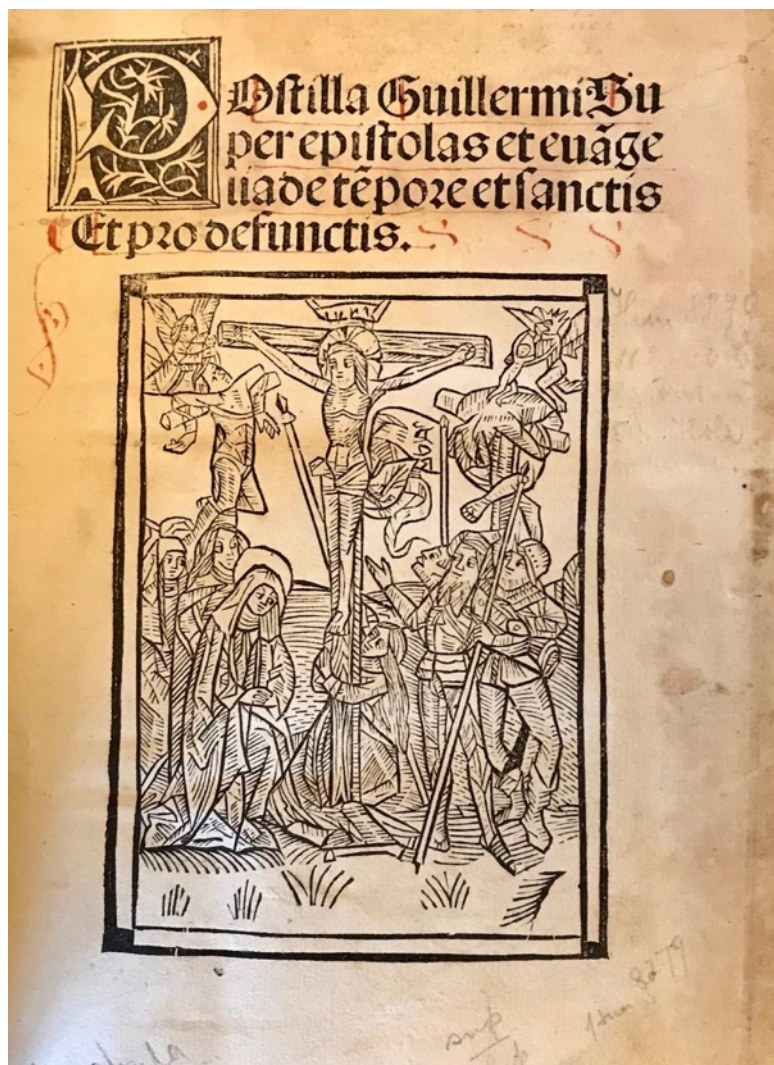 POstilla Guillermi Su
per epistolas et euãge
liade tẽpore et sanctis
Et pro defunctis.